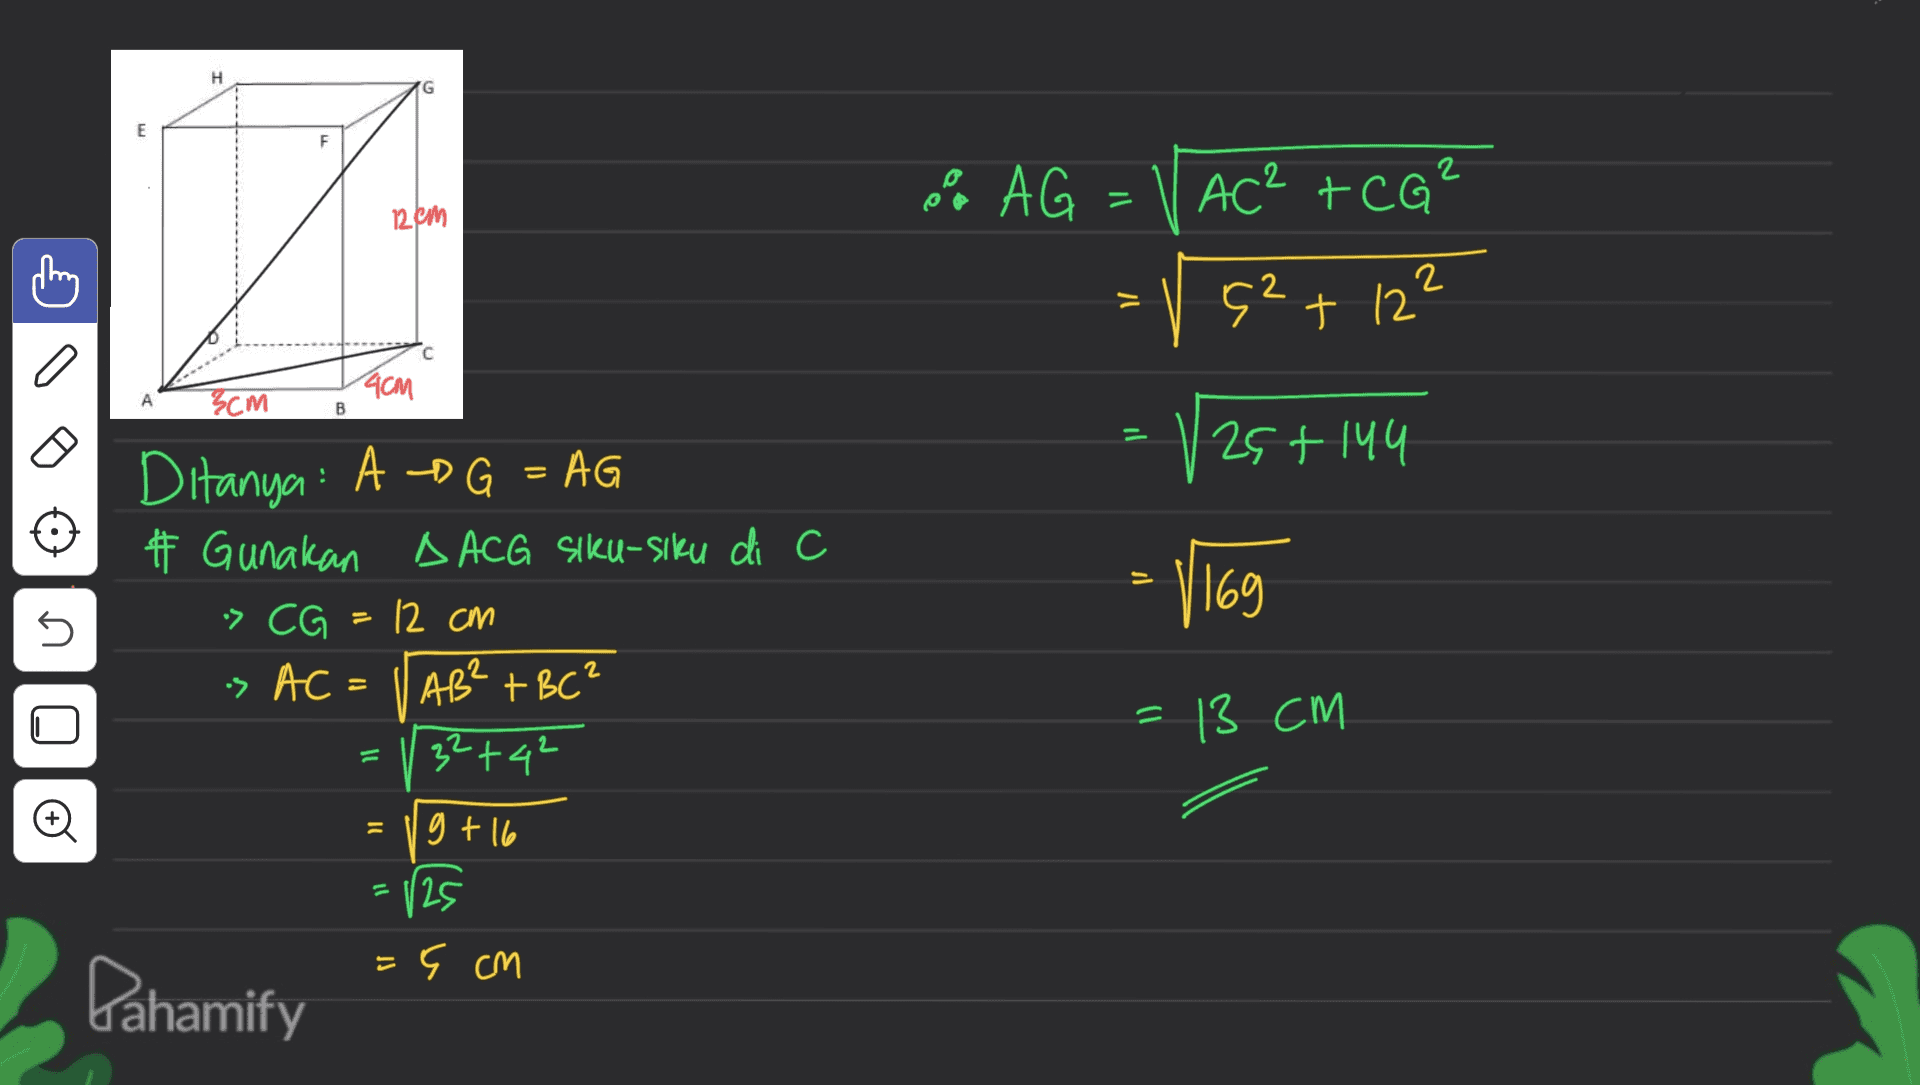 H
G
E
F
12 cm
D
C
4cm
A
3cm
B
Ditanya : A → G = AG
# Gunakan Δ ACG siku-siku di C
-> CG = 12 cm
-> AC = √AB² + BC²
= √3² + 4²
= √9 + 16
= √25
= 5 cm
∴ AG = √AC² + CG²
= √5² + 12²
= √25 + 144
= √169
= 13 cm
Pahamify